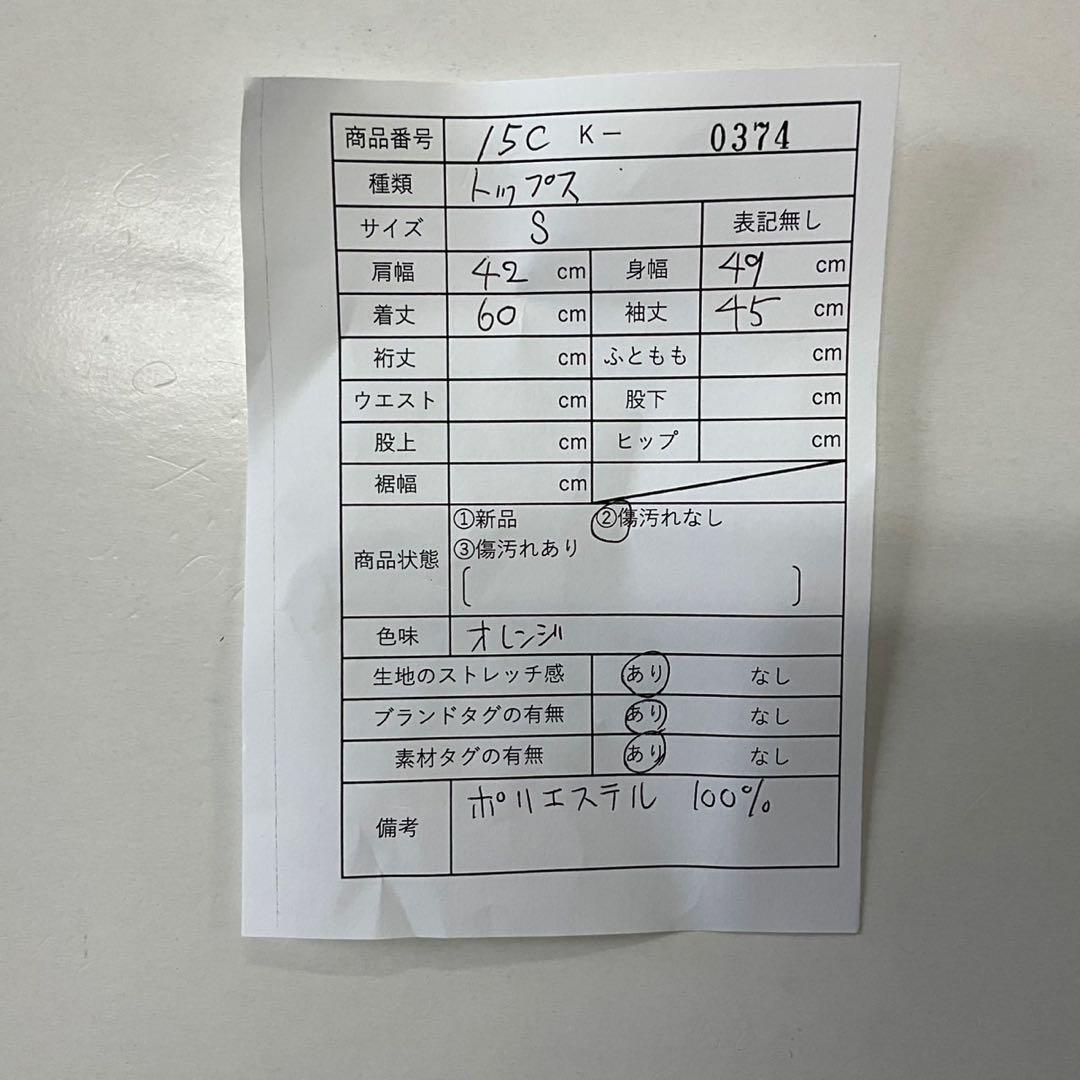 商品番号 15C K− 0374
種類 トップス
サイズ S 表記無し
肩幅 42 cm 身幅 49 cm
着丈 60 cm 袖丈 45 cm
裄丈 cm ふともも cm
ウエスト cm 股下 cm
股上 cm ヒップ cm
裾幅 cm
①新品 ②傷汚れなし
商品状態 ③傷汚れあり
[ ]
色味 オレンジ
生地のストレッチ感 あり なし
ブランドタグの有無 あり なし
素材タグの有無 あり なし
備考 ポリエステル 100%